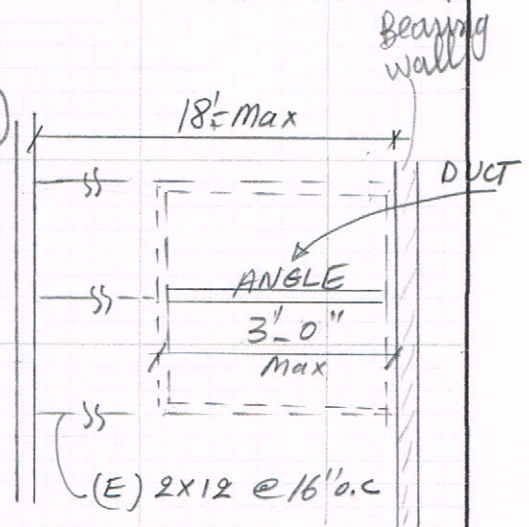 Bearing
wall
18'-Max
DUCT
ANGLE
3'-0"
Max
(E) 2X12 @ 16" o.c